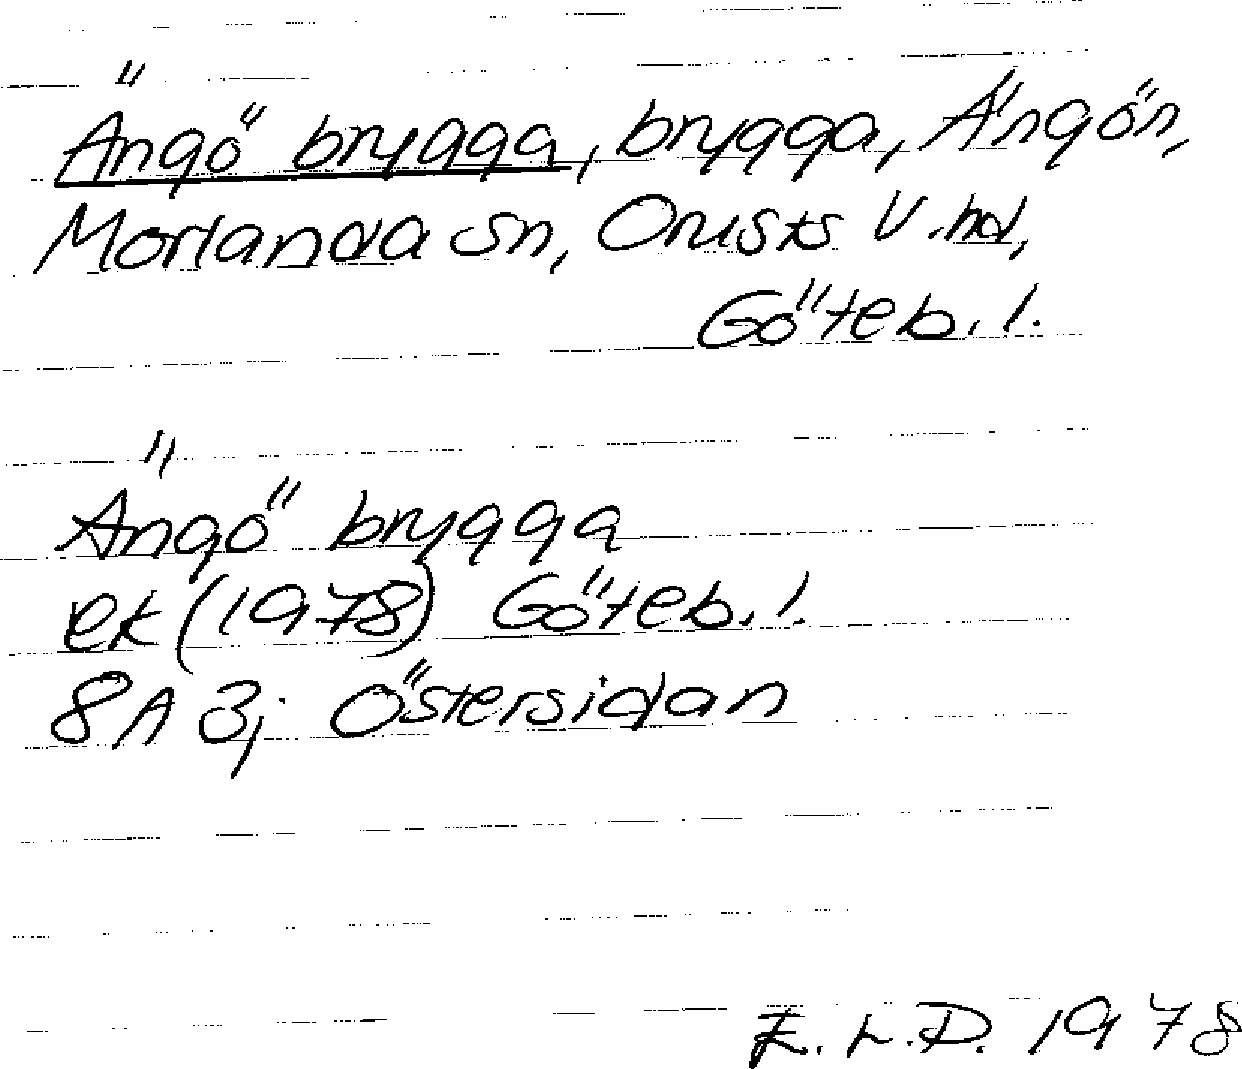 Ängö brygga, brygga, Ängön,
Morlanda sn, Orusts V. hd,
Göteb. l.
Ängö brygga
ek (1978) Göteb. l.
8A 3; Östersidan
E. L. D. 1978